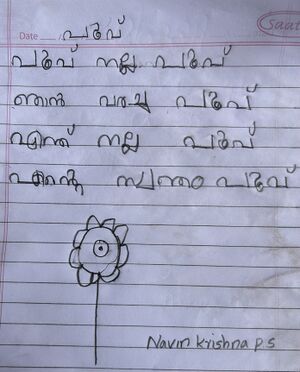 Date
പൂവ്
പൂവ് നല്ല പൂവ്
ഞാൻ വരച്ച പൂവ്
എന്ത് നല്ല പൂവ്
എന്റെ സ്വന്തം പൂവ്
Navin Krishna P S